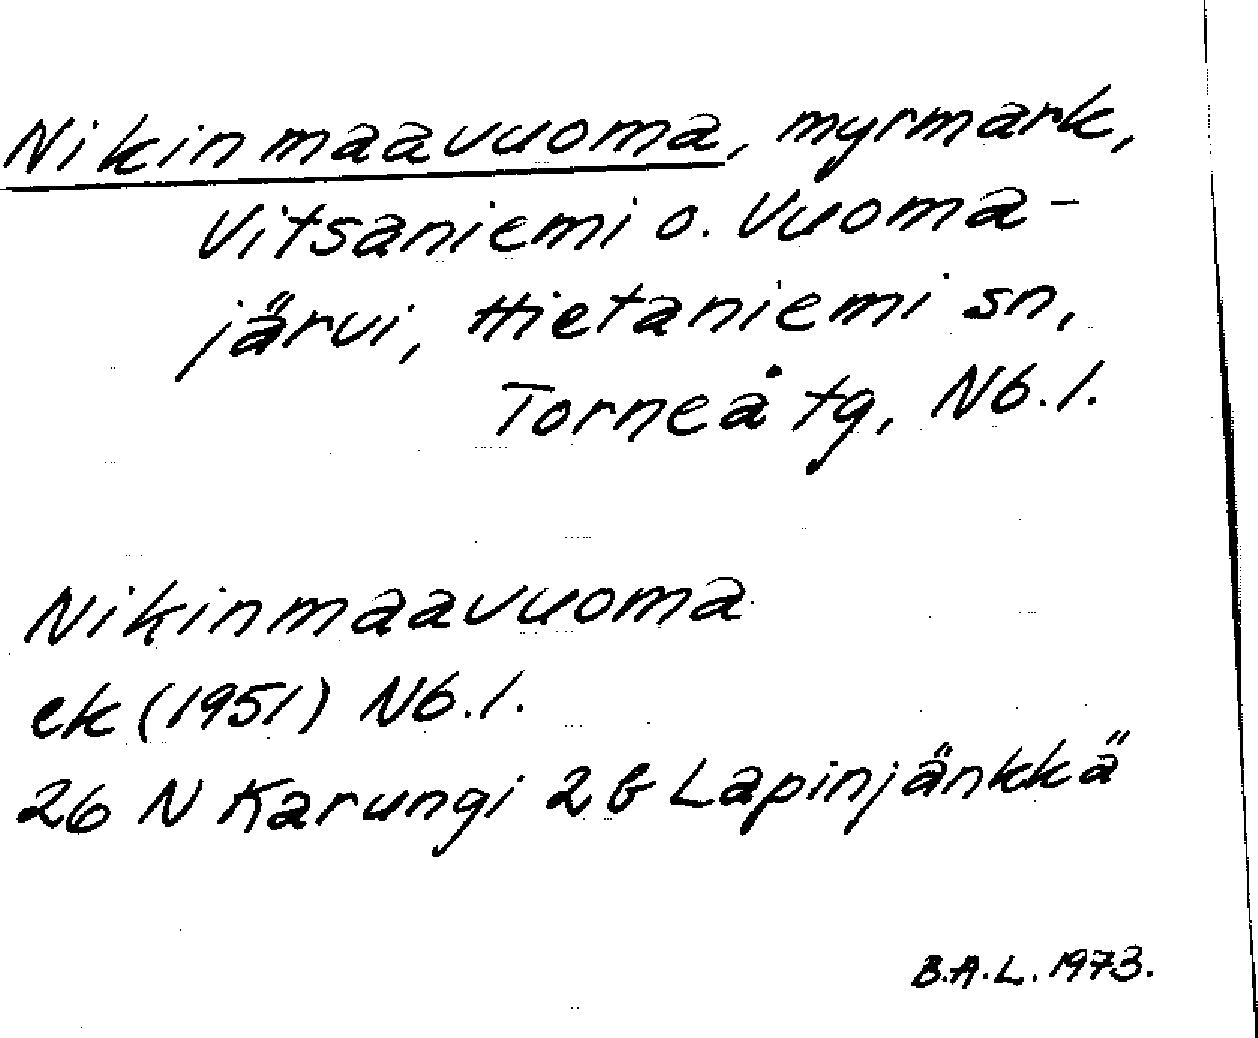 Nikinmaavuoma, myrmark,
Vitsaniemi o. Vuoma-
järvi, Hietaniemi sn,
Torneå tg, Nb.l.
Nikinmaavuoma
ek (1951) Nb.l.
26 N Karungi 2 b Lapinjänkkä
B.A.L. 1973.